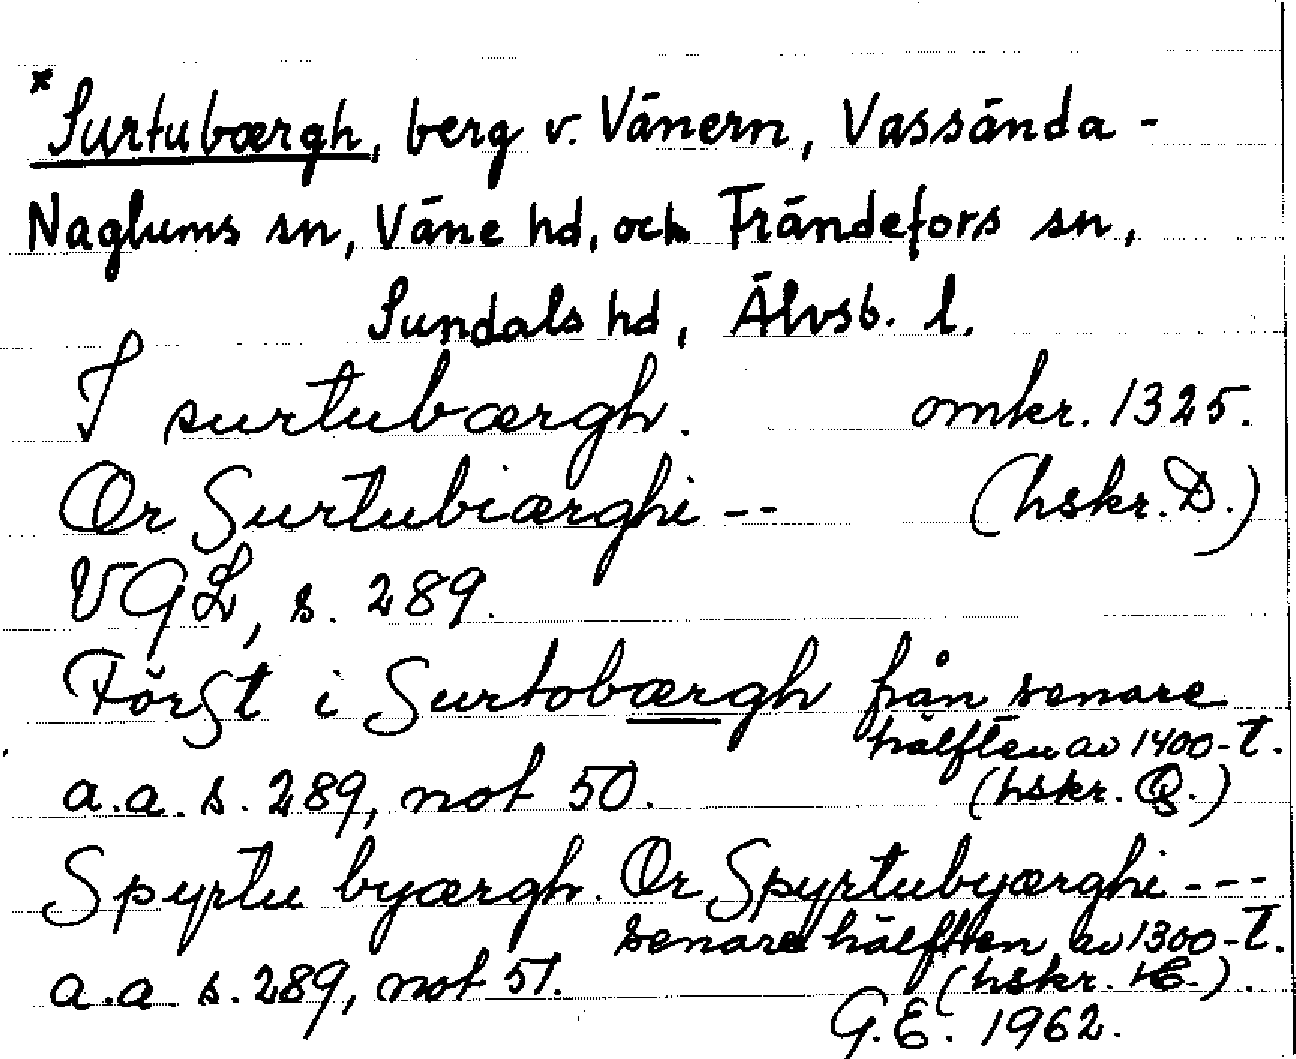 *Surtubærgh, berg v. Vänern, Vassända-
Naglums sn, Väne hd, och Frändefors sn,
Sundals hd, Älvsb. l.
I surtubærgh. omkr. 1325.
Or Surtubiærghi -- (hskr. D.)
VGL, s. 289.
Först i Surtobærgh från senare
hälften av 1400-t.
a.a. s. 289, not 50. (hskr. Q.)
Spyrtu byærgh. Or Spyrtubyærghi ---
senare hälften av 1300-t.
a.a s. 289, not 51. (hskr. E.).
G.E. 1962.